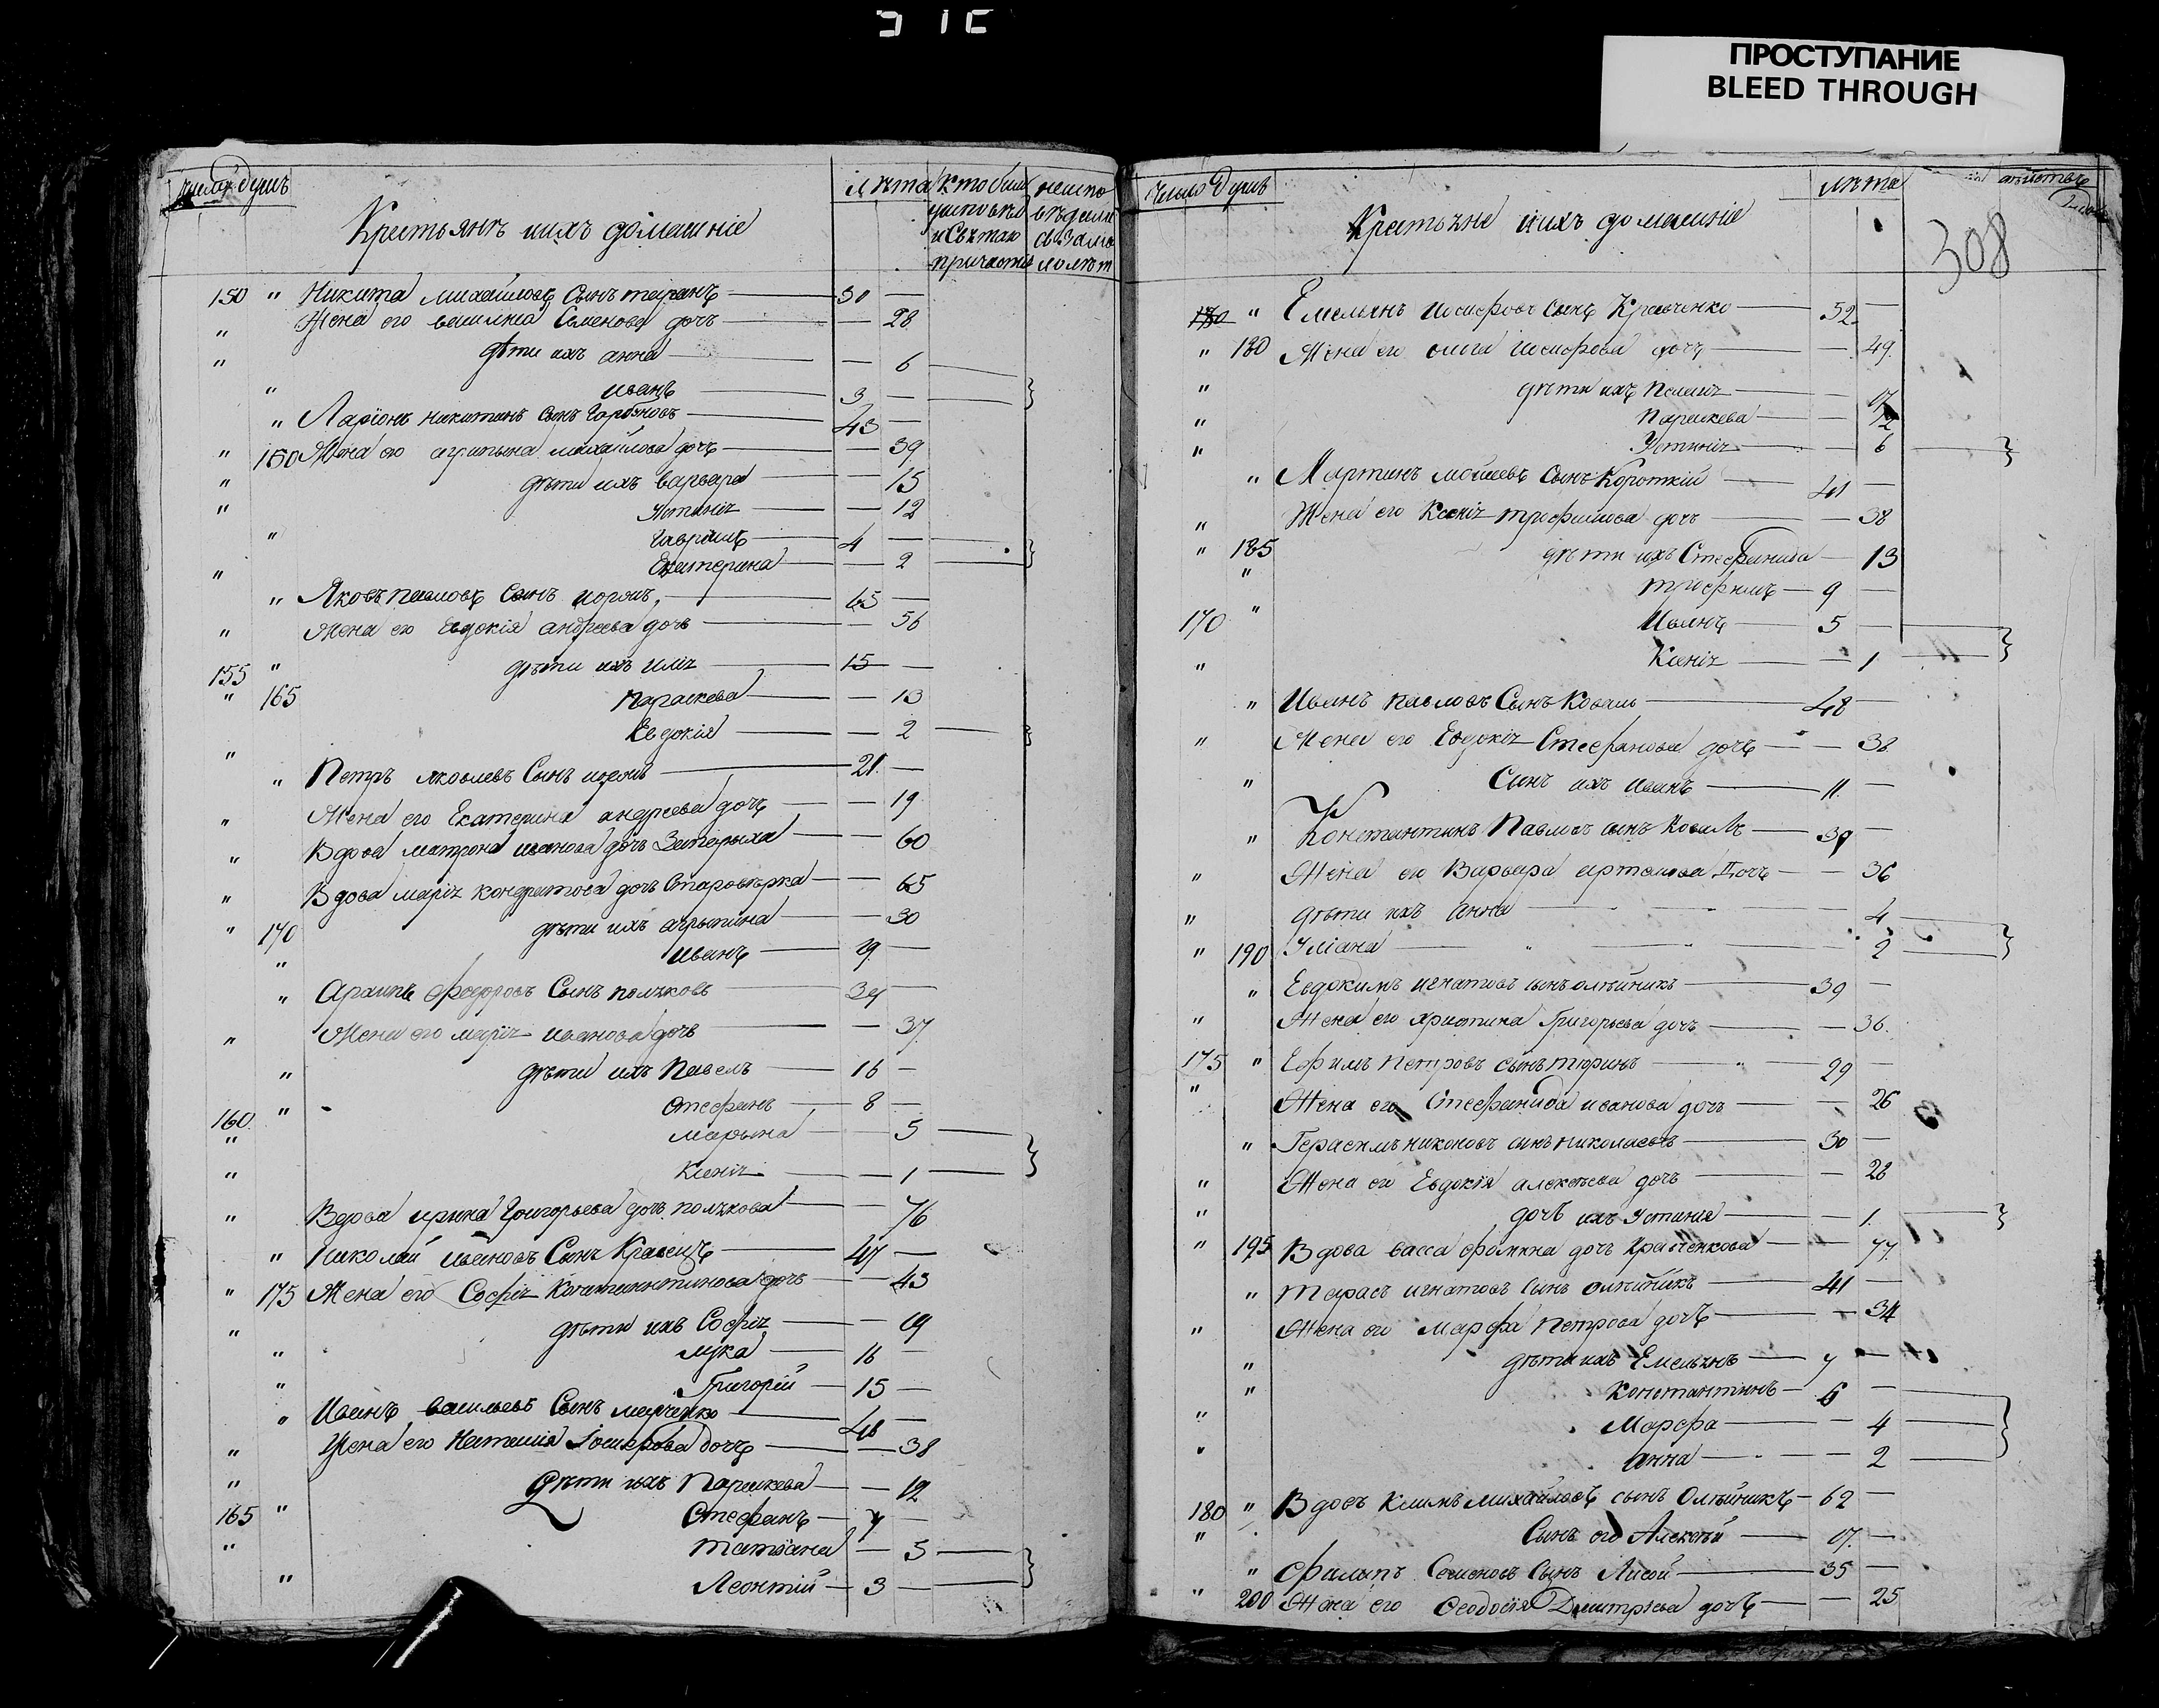 ПРОСТУПАНИЕ
BLEED THROUGH
число душъ
Крестьянъ и ихъ домашніе
лѣта
Кто былъ
у исповѣди
и Св. таю
причастія
150 " Никита михайловъ Сынъ таранъ — 30 —
" Жена его василиса Семенова дочъ — 28
" дѣти ихъ анна — 6
" иванъ — 3 —
" Ларіонъ никитинъ Сынъ Горбоновъ — 43 —
" 160 Жена его агрипына михаилова дочъ — 39
" дѣти ихъ варвара — 15
" Устиніz — 12
" Гавріилъ — 4 —
" Екатерина — 2
" Яковъ павловъ Сынъ — 65 —
" Жена его Евдокія андреева дочъ — 56
155 " дѣти ихъ иліz — 15 —
" 165 параскева — 13
" Евдокія — 2
" Петръ яковлевъ Сынъ — 21 —
" Жена его Екатерина андреева дочъ — 19
" Вдова матрона иванова дочъ — 60
" Вдова маріz кондратова дочъ Старовѣрка — 65
" 170 дѣти ихъ агрыпина — 30
" иванъ — 9 —
" Архипъ федоровъ Сынъ полѣковъ — 39 —
" Жена его маріz иванова дочъ — 37
" дѣти ихъ Павелъ — 16 —
160 " Стефанъ — 8 —
" марына — 5
" Ксеніz — 1
" Вдова ирина Григорьева дочъ полѣкова — 76
" Николай ивановъ Сынъ Кравецъ — 47 —
" 175 Жена его Софіz Константинова дочъ — 43
" дѣти ихъ Софіz — 19
" лука — 16 —
" Григорій — 15 —
" Иванъ васильевъ Сынъ марченко — 48 —
" Жена его Наталия Іосифова дочъ — 38
" Дѣти ихъ Параскева — 12
165 " Стефанъ — 7 —
" татіана — 5
" Леонтій — 3 —
число Душъ
Крестьяне и ихъ домашніе
лѣта
308
" Емельянъ иосифовъ сынъ Кравченко — 52 —
" 180 Жена его олга иосифова дочъ — 49
" дѣти ихъ Пелагіz — 17
" Параскева — 12
" Устиніz — 6
" Мартинъ мойсеевъ Сынъ Короткій — 41 —
" Жена его Ксеніz трофимова дочъ — 38
" 185 дѣти ихъ Стефанида — 13
" трофимъ — 9 —
170 " Иванъ — 5 —
" Ксеніz — 1
" Иванъ павловъ Сынъ Коваль — 48 —
" Жена его Евдокіz Стефанова дочъ — 38
" Сынъ ихъ иванъ — 11 —
" Константинъ Павловъ сынъ Коваль — 39 —
" Жена его Варвара артемова Дочъ — 36
" дѣти ихъ анна — 4
" 190 Уліана — 2
" Евдокимъ игнатовъ сынъ олѣйникъ — 39 —
" Жена его христина Григорьева дочъ — 36
175 " Ефимъ петровъ сынъ тюринъ — 29 —
" Жена его Стефанида иванова дочъ — 26
" Герасимъ никоновъ сынъ николаевъ — 30 —
" Жена его Евдокія алексѣева дочъ — 28
" дочъ ихъ Устинія — 1
" 195 Вдова васса фомина дочъ — 77
" Тарасъ игнатовъ Сынъ олѣйникъ — 41 —
" Жена его марфа Петрова дочъ — 34
" дѣти ихъ Емельянъ — 7 —
" Константинъ — 6 —
" Марфа — 4
" анна — 2
180 " Вдовъ Климъ михайловъ сынъ Олѣйникъ — 62 —
" Сынъ его Алексѣй — 17 —
" Филипъ Семеновъ Сынъ Лисой — 35 —
" 200 Жена его Феодосія Дмитріева дочъ — 25